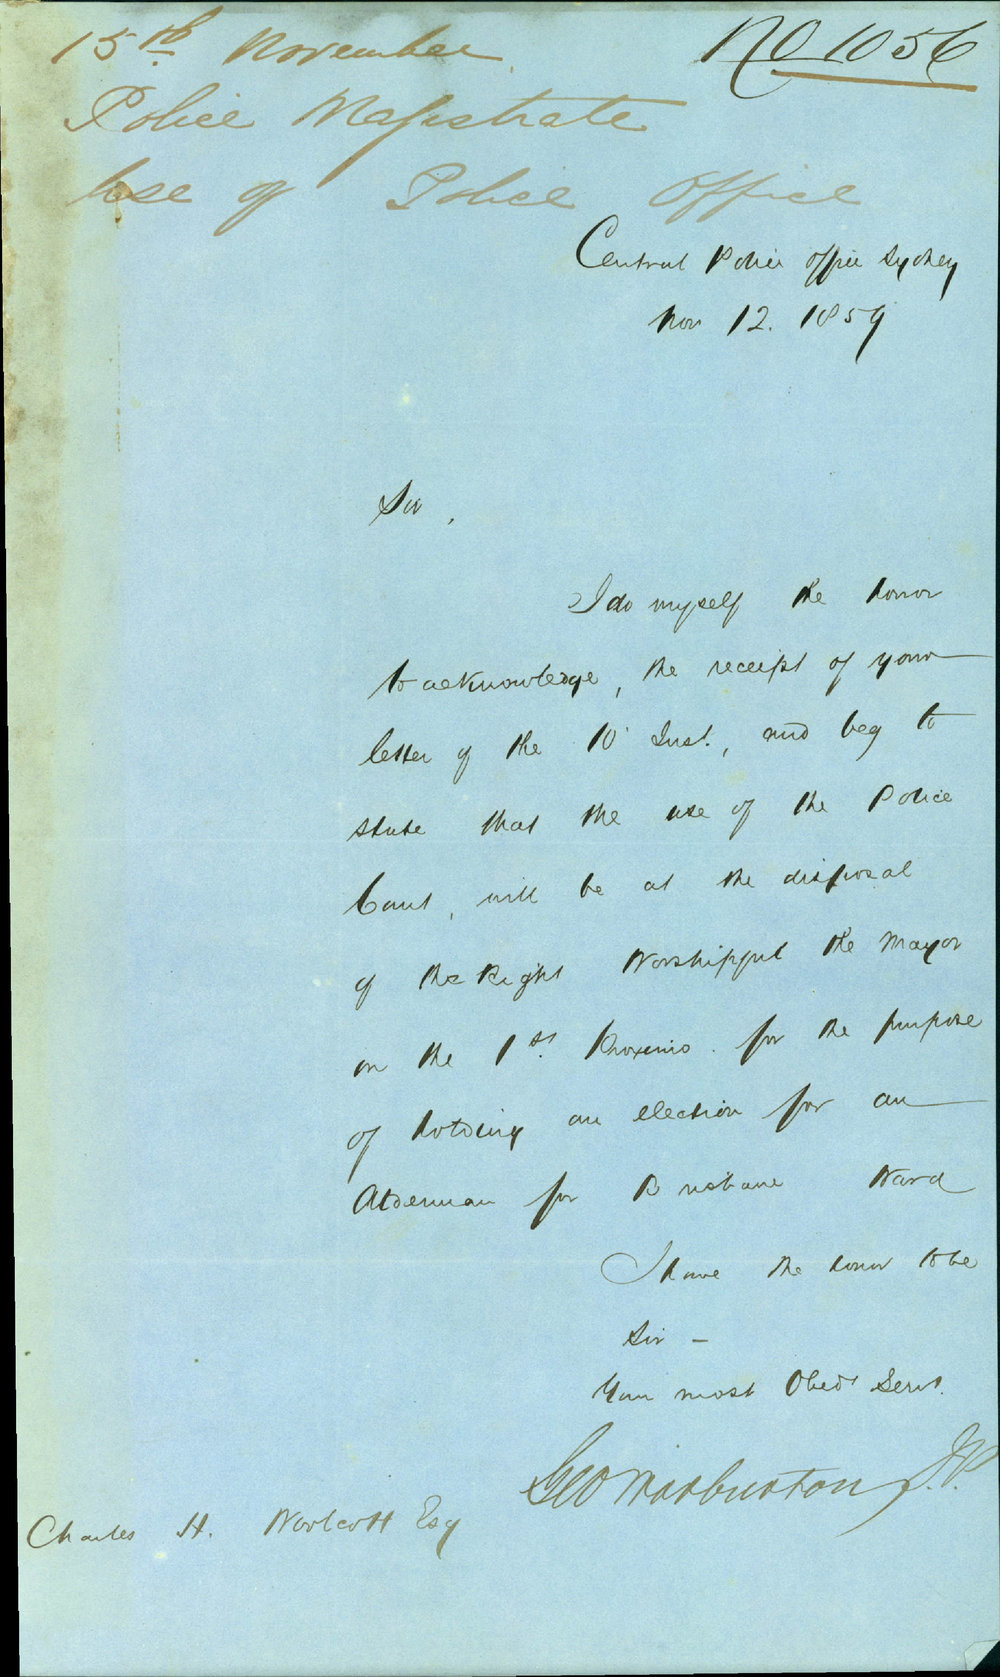 15th November
No 1056
Police Magistrate
Use of Police Office
Central Police Office Sydney
Nov 12. 1859
Sir,
I do myself the honor
to acknowledge, the receipt of your
letter of the 10' Inst., and beg to
state that the use of the Police
Court, will be at the disposal
of the Right Worshipful the Mayor
on the 1st. Proximo. for the purpose
of holding an election for an
Alderman for Brisbane Ward
I have the honor to be
Sir -
Your most Obedt Servt.
Geo Warburton J.P.
Charles H. Woolcott Esq